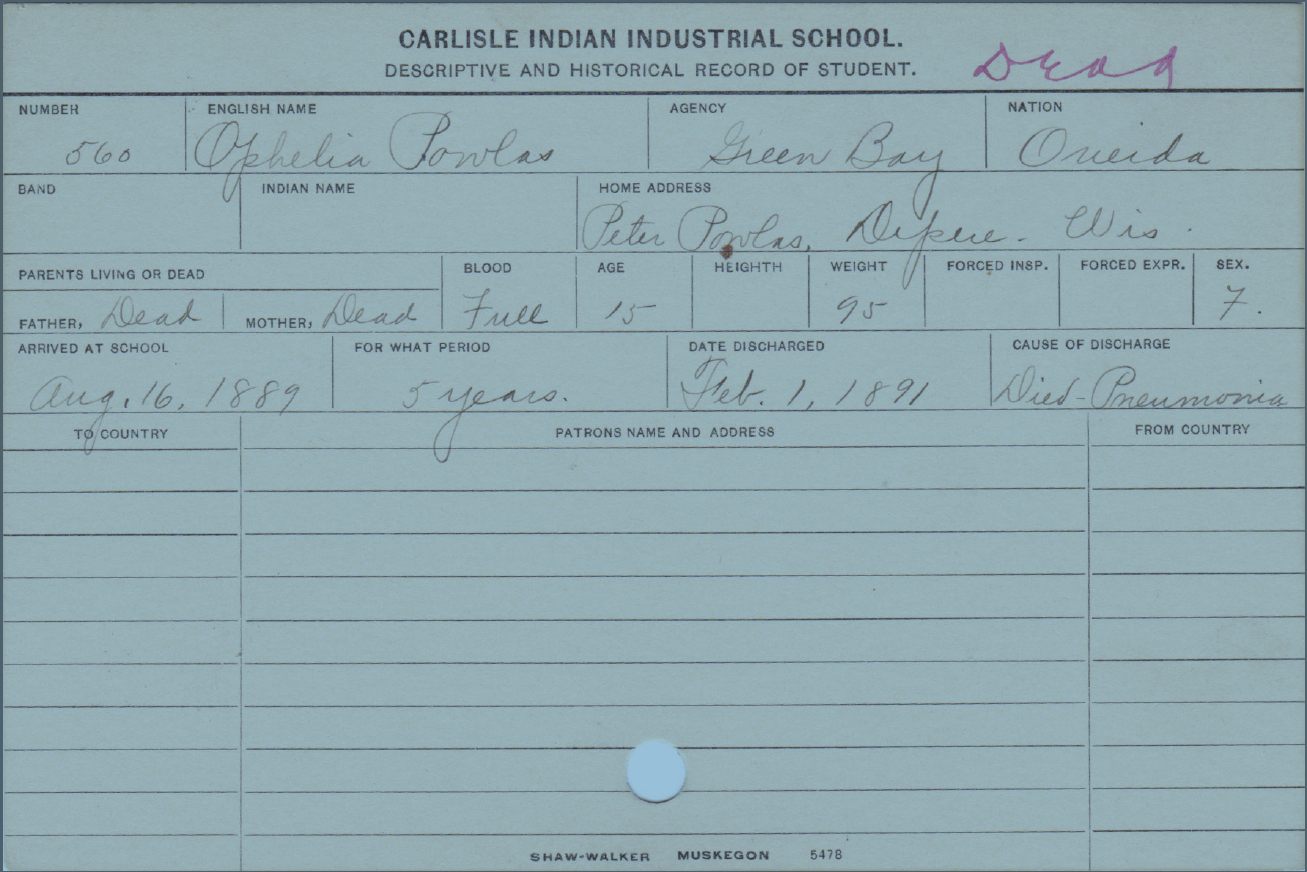 CARLISLE INDIAN INDUSTRIAL SCHOOL.
DESCRIPTIVE AND HISTORICAL RECORD OF STUDENT. Dead
NUMBER ENGLISH NAME AGENCY NATION
560 Ophelia Powlas Green Bay Oneida
BAND INDIAN NAME HOME ADDRESS
Peter Powlas, Depere. Wis.
PARENTS LIVING OR DEAD BLOOD AGE HEIGHTH WEIGHT FORCED INSP. FORCED EXPR. SEX.
FATHER, Dead MOTHER, Dead Full 15 95 F.
ARRIVED AT SCHOOL FOR WHAT PERIOD DATE DISCHARGED CAUSE OF DISCHARGE
Aug. 16, 1889 5 years. Feb. 1, 1891 Died-Pneumonia
TO COUNTRY PATRONS NAME AND ADDRESS FROM COUNTRY
SHAW-WALKER MUSKEGON 5478